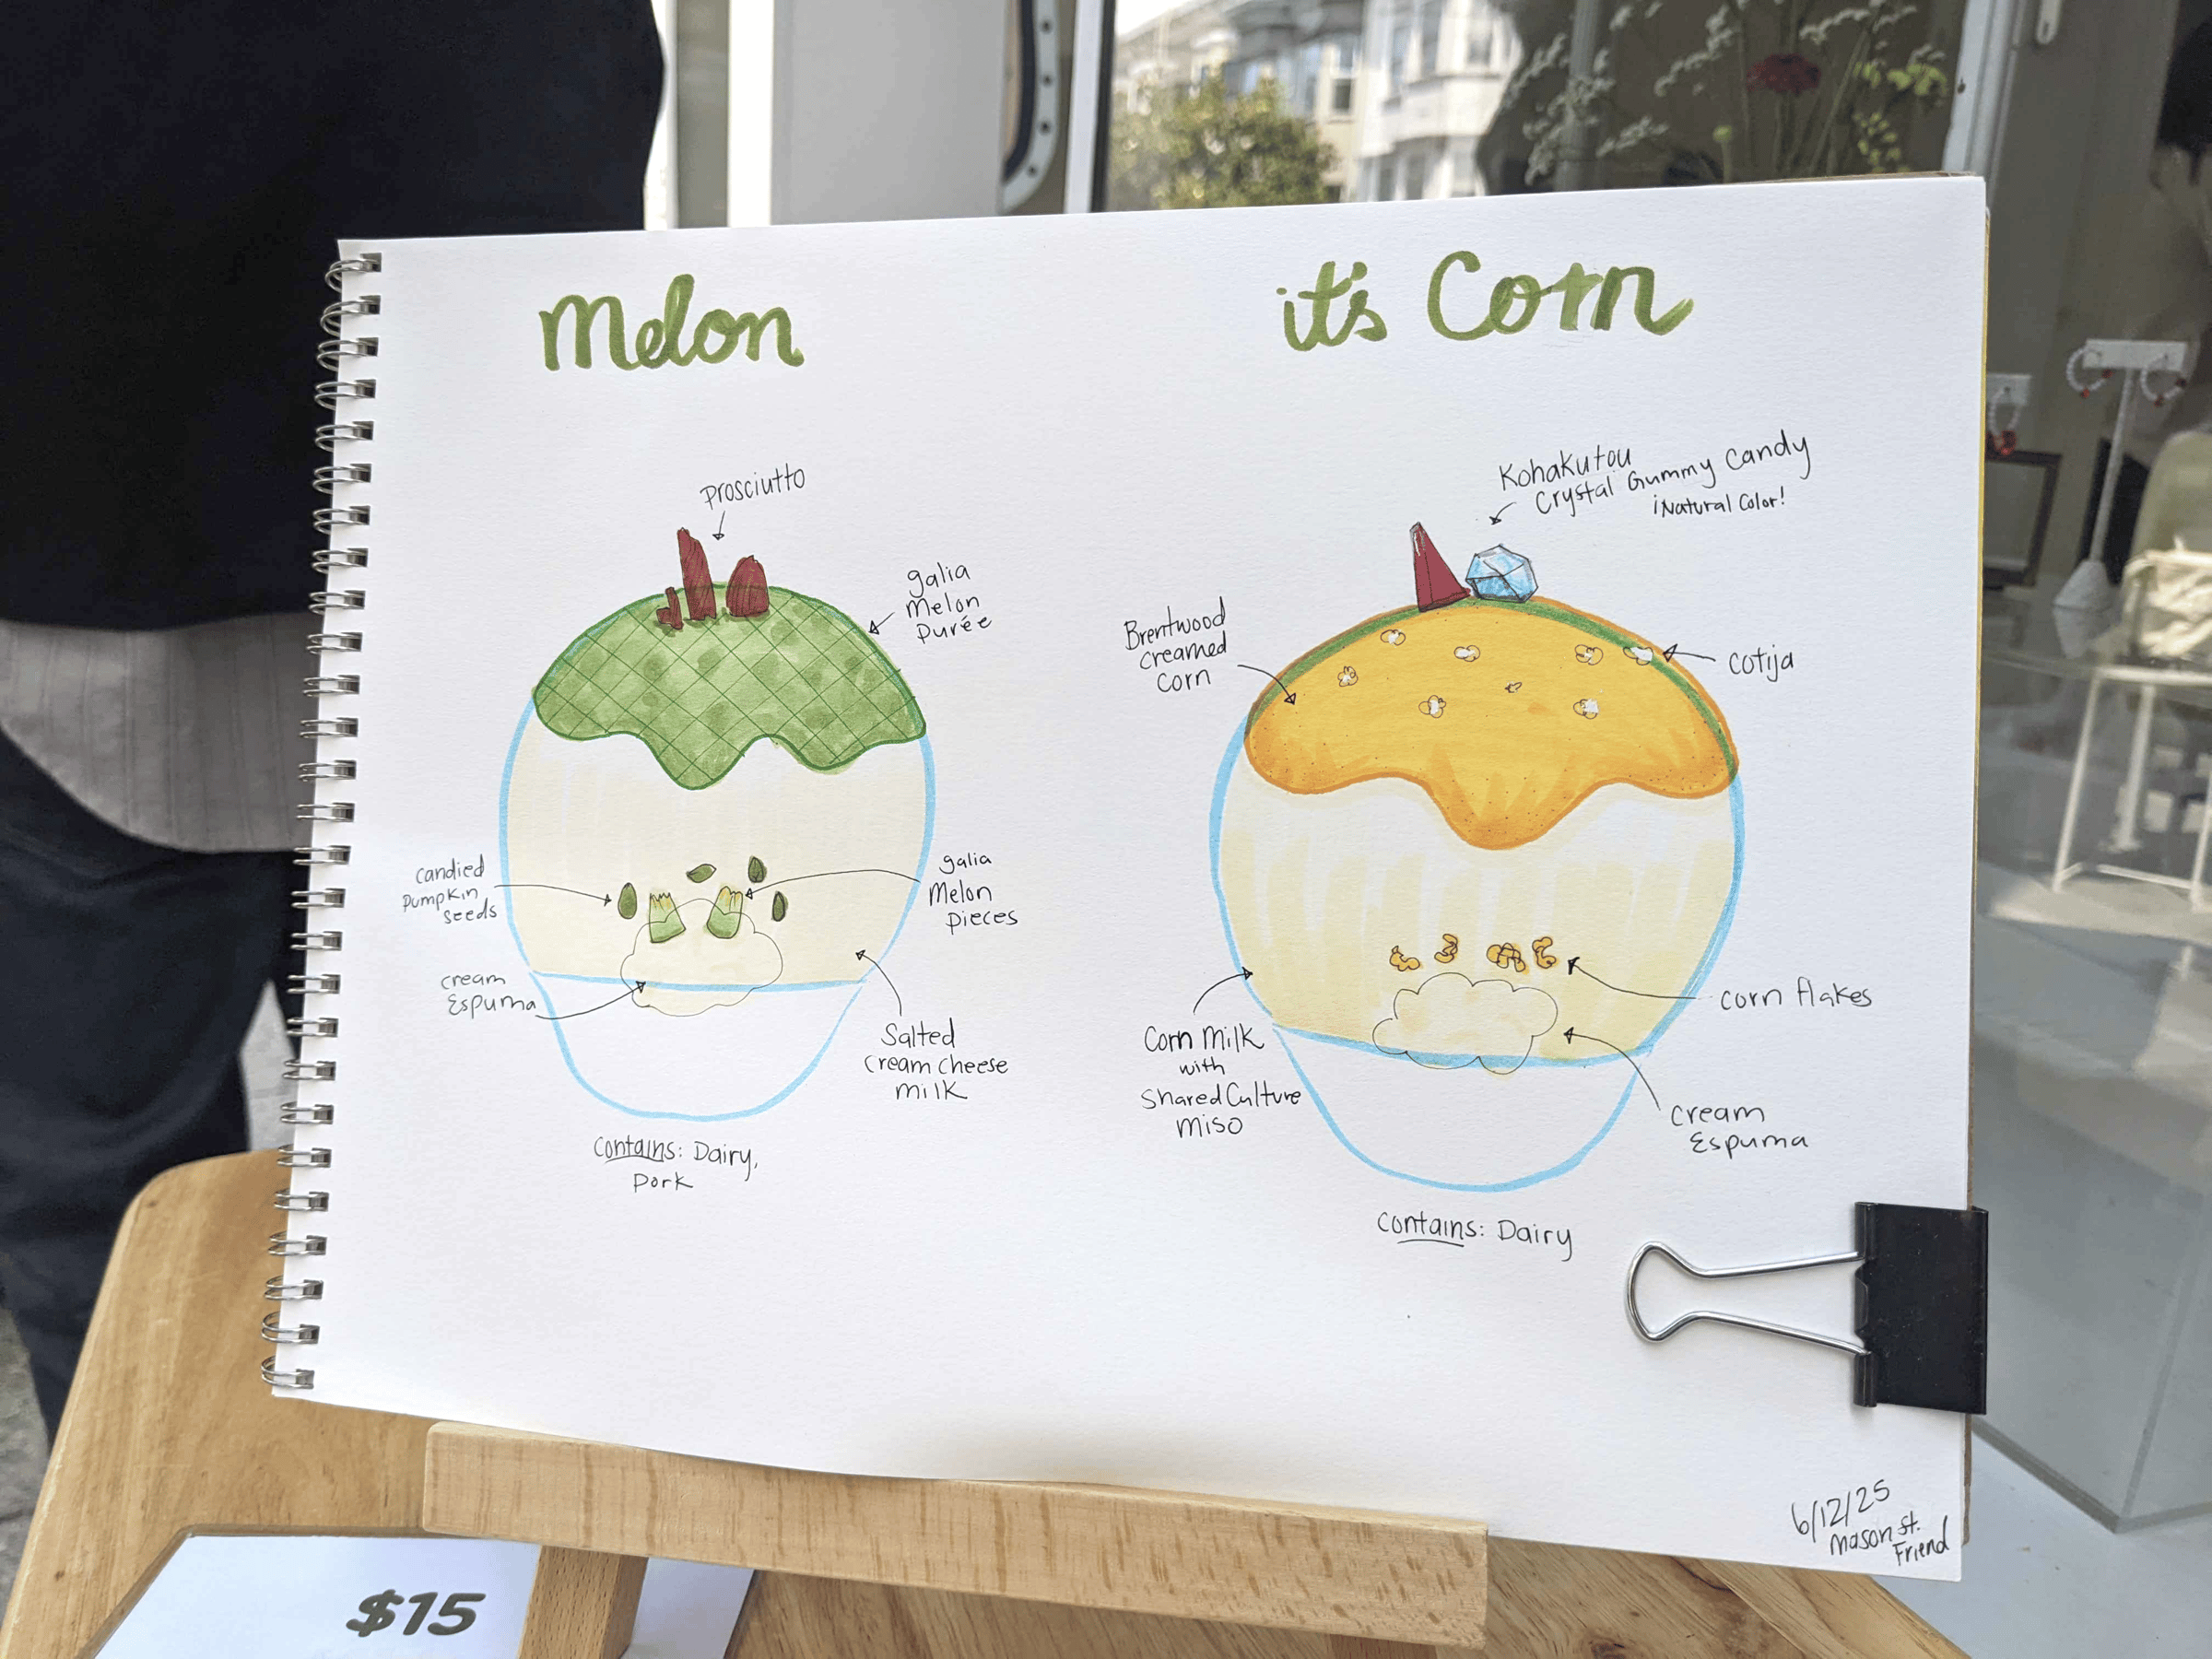 Melon
it's Corn
prosciutto
galia
Melon
purée
candied
pumpkin
seeds
galia
Melon
pieces
cream
Espuma
Salted
cream cheese
milk
contains: Dairy,
pork
Kohakutou
Crystal Gummy Candy
¡Natural Color!
Brentwood
creamed
corn
cotija
corn flakes
Corn Milk
with
Shared Culture
miso
cream
Espuma
contains: Dairy
6/12/25
Mason St.
Friend
$15